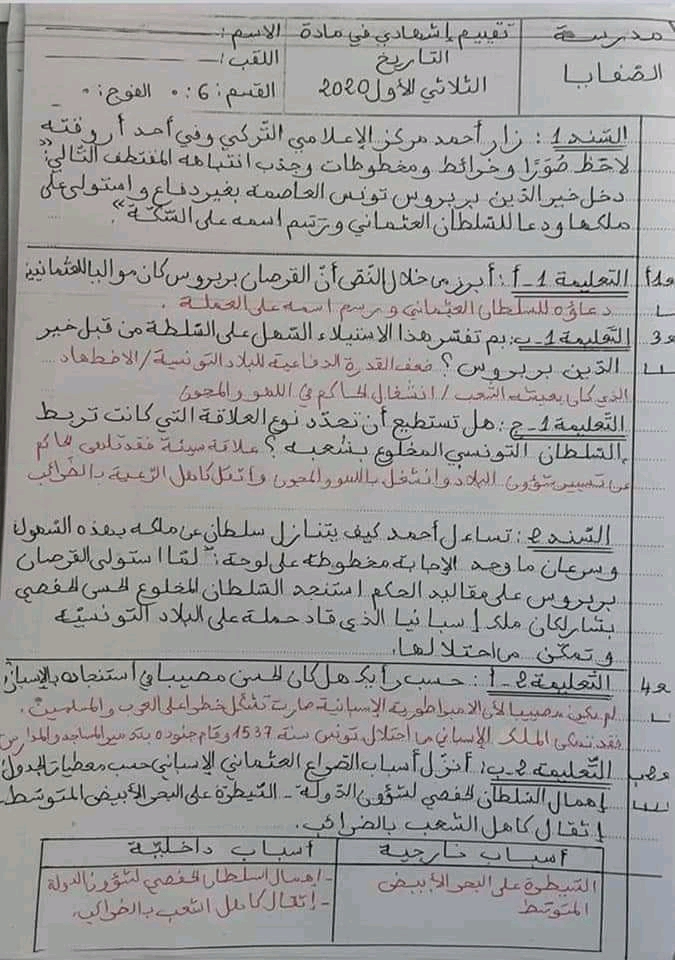 مدرسة
الصفايا
تقييم إشهادي في مادة
التاريخ
الثلاثي الأول 2020
الاسم:
اللقب:
القسم: 6 الفوج:
السند 1: زار أحمد مركز الإعلامي التركي وفي أحد أروقته
لاحظ صورًا وخرائط ومخطوطات وجذب انتباهه المقتطف التالي: «
دخل خير الدين بربروس تونس العاصمة بغير دفاع واستولى على
ملكها ودعا للسلطان العثماني ورسم اسمه على السّكّة».
مع1أ
التعليمة 1-أ: أبرز من خلال النص أنّ القرصان بربروس كان مواليا للعثمانيين
دعاؤه للسلطان العثماني ورسم اسمه على العملة.
مع3
التعليمة 1-ب: بم تفسّر هذا الاستيلاء السّهل على السّلطة من قبل خير
الدّين بربروس؟ ضعف القدرة الدفاعية للبلاد التونسية/الاضطهاد
الذي كان يعيشه الشعب/ انشغال الحاكم في اللهو والمجون
التعليمة 1-ج: هل تستطيع أن تحدّد نوع العلاقة التي كانت تربط
السّلطان التونسي المخلوع بشعبه؟ علاقة سيئة فقد تلهى الحاكم
عن تسيير شؤون البلاد وانشغل باللهو والمجون وأثقل كاهل الرّعية بالضّرائب
السّند 2: تساءل أحمد كيف يتنازل سلطان عن ملكه بهذه السّهولة
وسرعان ما وجد الإجابة مخطوطة على لوحة: "لمّا استولى القرصان
بربروس على مقاليد الحكم استنجد السّلطان المخلوع الحسن الحفصي
بشارلكان ملك إسبانيا الذي قاد حملة على البلاد التونسيّة
وتمكّن من احتلالها.
مع4
التّعليمة 2-أ: حسب رأيك هل كان الحسن مصيبا في استنجاده بالإسبان
لم يكن مصيبا لأن الامبراطورية الإسبانية صارت تشكّل خطرا على العرب والمسلمين.
فقد تمكن الملك الإسباني من احتلال تونس سنة 1537 وقام جنوده بتدمير المساجد والمدارس
مع2ب
التّعليمة 2-ب: أنزّل أسباب الصّراع العثماني الإسباني حسب معطيات الجدول:
إهمال السّلطان الحفصي لشؤون الدّولة - السّيطرة على البحر الأبيض المتوسّط -
إثقال كاهل الشعب بالضّرائب.
أسباب خارجية
أسباب داخليّة
السّيطرة على البحر الأبيض
المتوسّط
- إهمال السلطان الحفصي لشؤون الدولة
- إثقال كاهل الشعب بالضرائب.